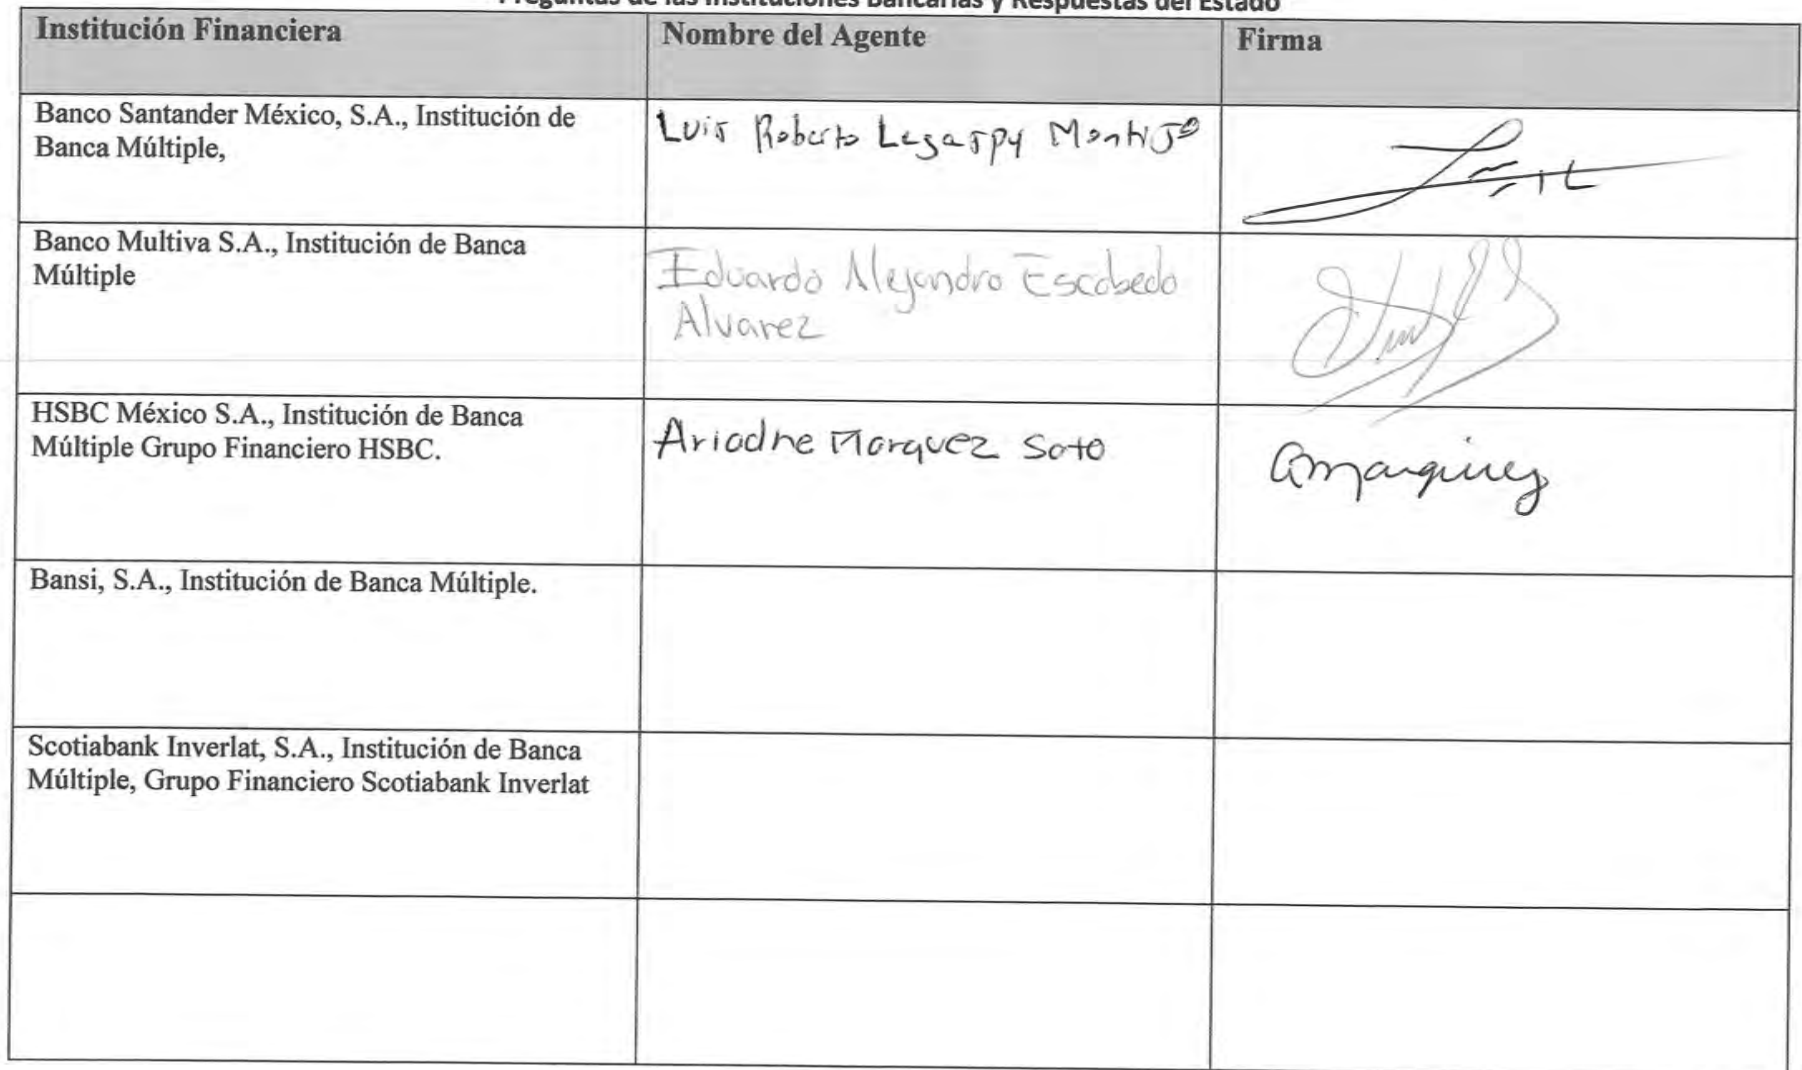 Preguntas de las Instituciones Bancarias y Respuestas del Estado
Institución Financiera
Nombre del Agente
Firma
Banco Santander México, S.A., Institución de
Banca Múltiple,
Luis Roberto Legaspy Montijo
Banco Multiva S.A., Institución de Banca
Múltiple
Eduardo Alejandro Escobedo
Alvarez
HSBC México S.A., Institución de Banca
Múltiple Grupo Financiero HSBC.
Ariadne Marquez Soto
amarquez
Bansi, S.A., Institución de Banca Múltiple.
Scotiabank Inverlat, S.A., Institución de Banca
Múltiple, Grupo Financiero Scotiabank Inverlat